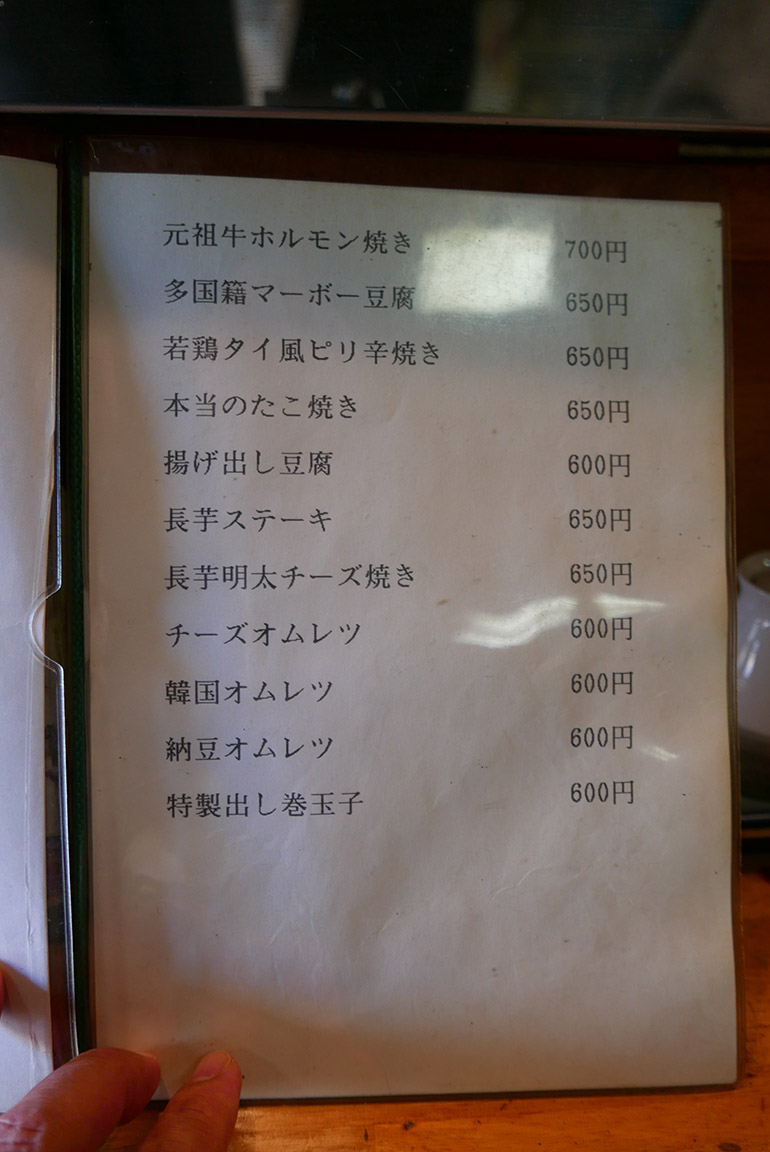 元祖牛ホルモン焼き 700円
多国籍マーボー豆腐 650円
若鶏タイ風ピリ辛焼き 650円
本当のたこ焼き 650円
揚げ出し豆腐 600円
長芋ステーキ 650円
長芋明太チーズ焼き 650円
チーズオムレツ 600円
韓国オムレツ 600円
納豆オムレツ 600円
特製出し巻玉子 600円